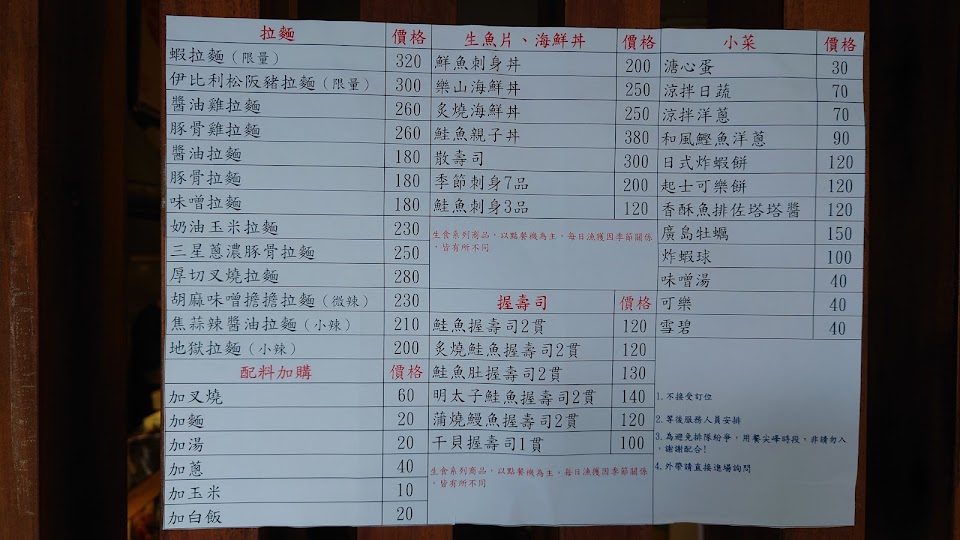 拉麵 價格
蝦拉麵（限量） 320
伊比利松阪豬拉麵（限量） 300
醬油雞拉麵 260
豚骨雞拉麵 260
醬油拉麵 180
豚骨拉麵 180
味噌拉麵 180
奶油玉米拉麵 230
三星蔥濃豚骨拉麵 250
厚切叉燒拉麵 280
胡麻味噌擔擔拉麵（微辣） 230
焦蒜辣醬油拉麵（小辣） 210
地獄拉麵（小辣） 200
配料加購 價格
加叉燒 60
加麵 20
加湯 20
加蔥 40
加玉米 10
加白飯 20
生魚片、海鮮丼 價格
鮮魚刺身丼 200
樂山海鮮丼 250
炙燒海鮮丼 250
鮭魚親子丼 380
散壽司 300
季節刺身7品 200
鮭魚刺身3品 120
生食系列商品，以點餐機為主，每日漁獲因季節關係
，皆有所不同
握壽司 價格
鮭魚握壽司2貫 120
炙燒鮭魚握壽司2貫 120
鮭魚肚握壽司2貫 130
明太子鮭魚握壽司2貫 140
蒲燒鰻魚握壽司2貫 120
干貝握壽司1貫 100
生食系列商品，以點餐機為主，每日漁獲因季節關係
，皆有所不同
小菜 價格
溏心蛋 30
涼拌日蔬 70
涼拌洋蔥 70
和風鰹魚洋蔥 90
日式炸蝦餅 120
起士可樂餅 120
香酥魚排佐塔塔醬 120
廣島牡蠣 150
炸蝦球 100
味噌湯 40
可樂 40
雪碧 40
1.不接受訂位
2.等後服務人員安排
3.為避免排隊紛爭，用餐尖峰時段，非請勿入
，謝謝配合!
4.外帶請直接進場詢問